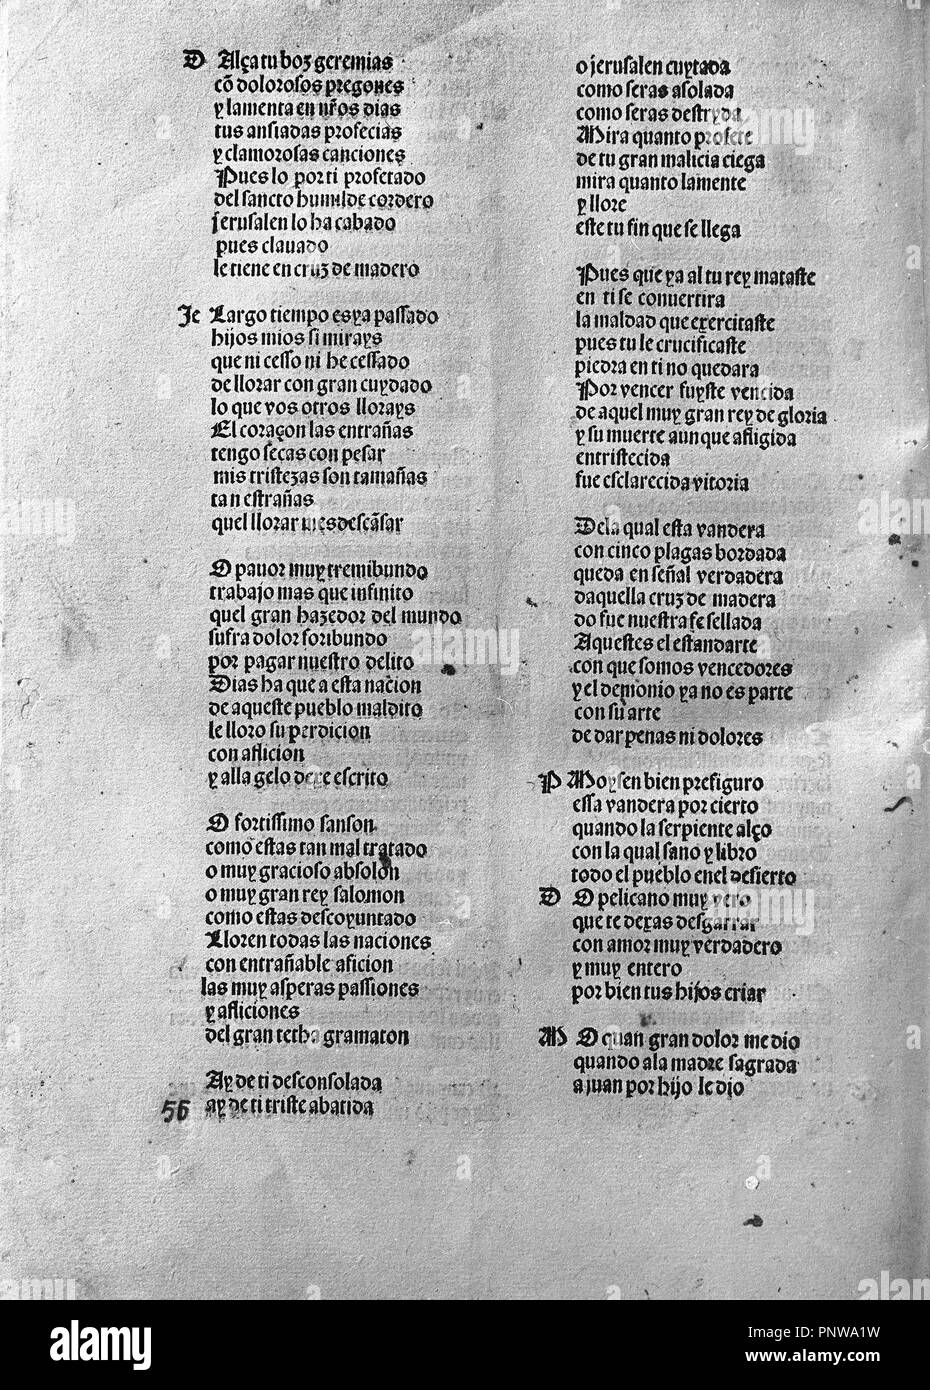 D Alça tu boz geremias
cõ dolorosos pregones
y lamenta en nr̃os dias
tus ansiadas profecias
y clamorosas canciones
Pues lo por ti profetado
del sancto humilde cordero
jerusalen lo ha cabado
pues clauado
le tiene en cruz de madero
Je Largo tiempo es ya passado
hijos mios si mirays
que ni cesso ni he cessado
de llorar con gran cuydado
lo que vos otros llorays
El coraçon las entrañas
tengo secas con pesar
mis tristezas son tamañas
tan estrañas
quel llorar mes descãsar
O pauor muy tremibundo
trabajo mas que infinito
quel gran hazedor del mundo
sufra dolor foribundo
por pagar nuestro delito
Dias ha que a esta nacion
de aqueste pueblo maldito
le lloro su perdicion
con aflicion
y alla gelo dexe escrito
O fortissimo sanson
como estas tan mal tratado
o muy gracioso absolon
o muy gran rey salomon
como estas descoyuntado
Lloren todas las naciones
con entrañable aficion
las muy asperas passiones
y afliciones
del gran tetha gramaton
Ay de ti desconsolada
56 ay de ti triste abatida
o jerusalen cuytada
como seras asolada
como seras destryda
Mira quanto profete
de tu gran malicia ciega
mira quanto lamente
y llore
este tu fin que se llega
Pues que ya al tu rey mataste
en ti se conuertira
la maldad que exercitaste
pues tu le crucificaste
piedra en ti no quedara
Por vencer fuyste vencida
de aquel muy gran rey de gloria
y su muerte aun que afligida
entristecida
fue esclarecida vitoria
Dela qual esta vandera
con cinco plagas bordada
queda en señal verdadera
daquella cruz de madera
do fue nuestra fe sellada
Aquestes el estandarte
con que somos vencedores
y el demonio ya no es parte
con su arte
de dar penas ni dolores
P Moysen bien prefiguro
essa vandera por cierto
quando la serpiente alço
con la qual sano y libro
todo el pueblo enel desierto
D O pelicano muy vero
que te dexas desgarrar
con amor muy verdadero
y muy entero
por bien tus hijos criar
M O quan gran dolor me dio
quando ala madre sagrada
a juan por hijo le dio
alamy
Image ID: PNWA1W
www.alamy.com